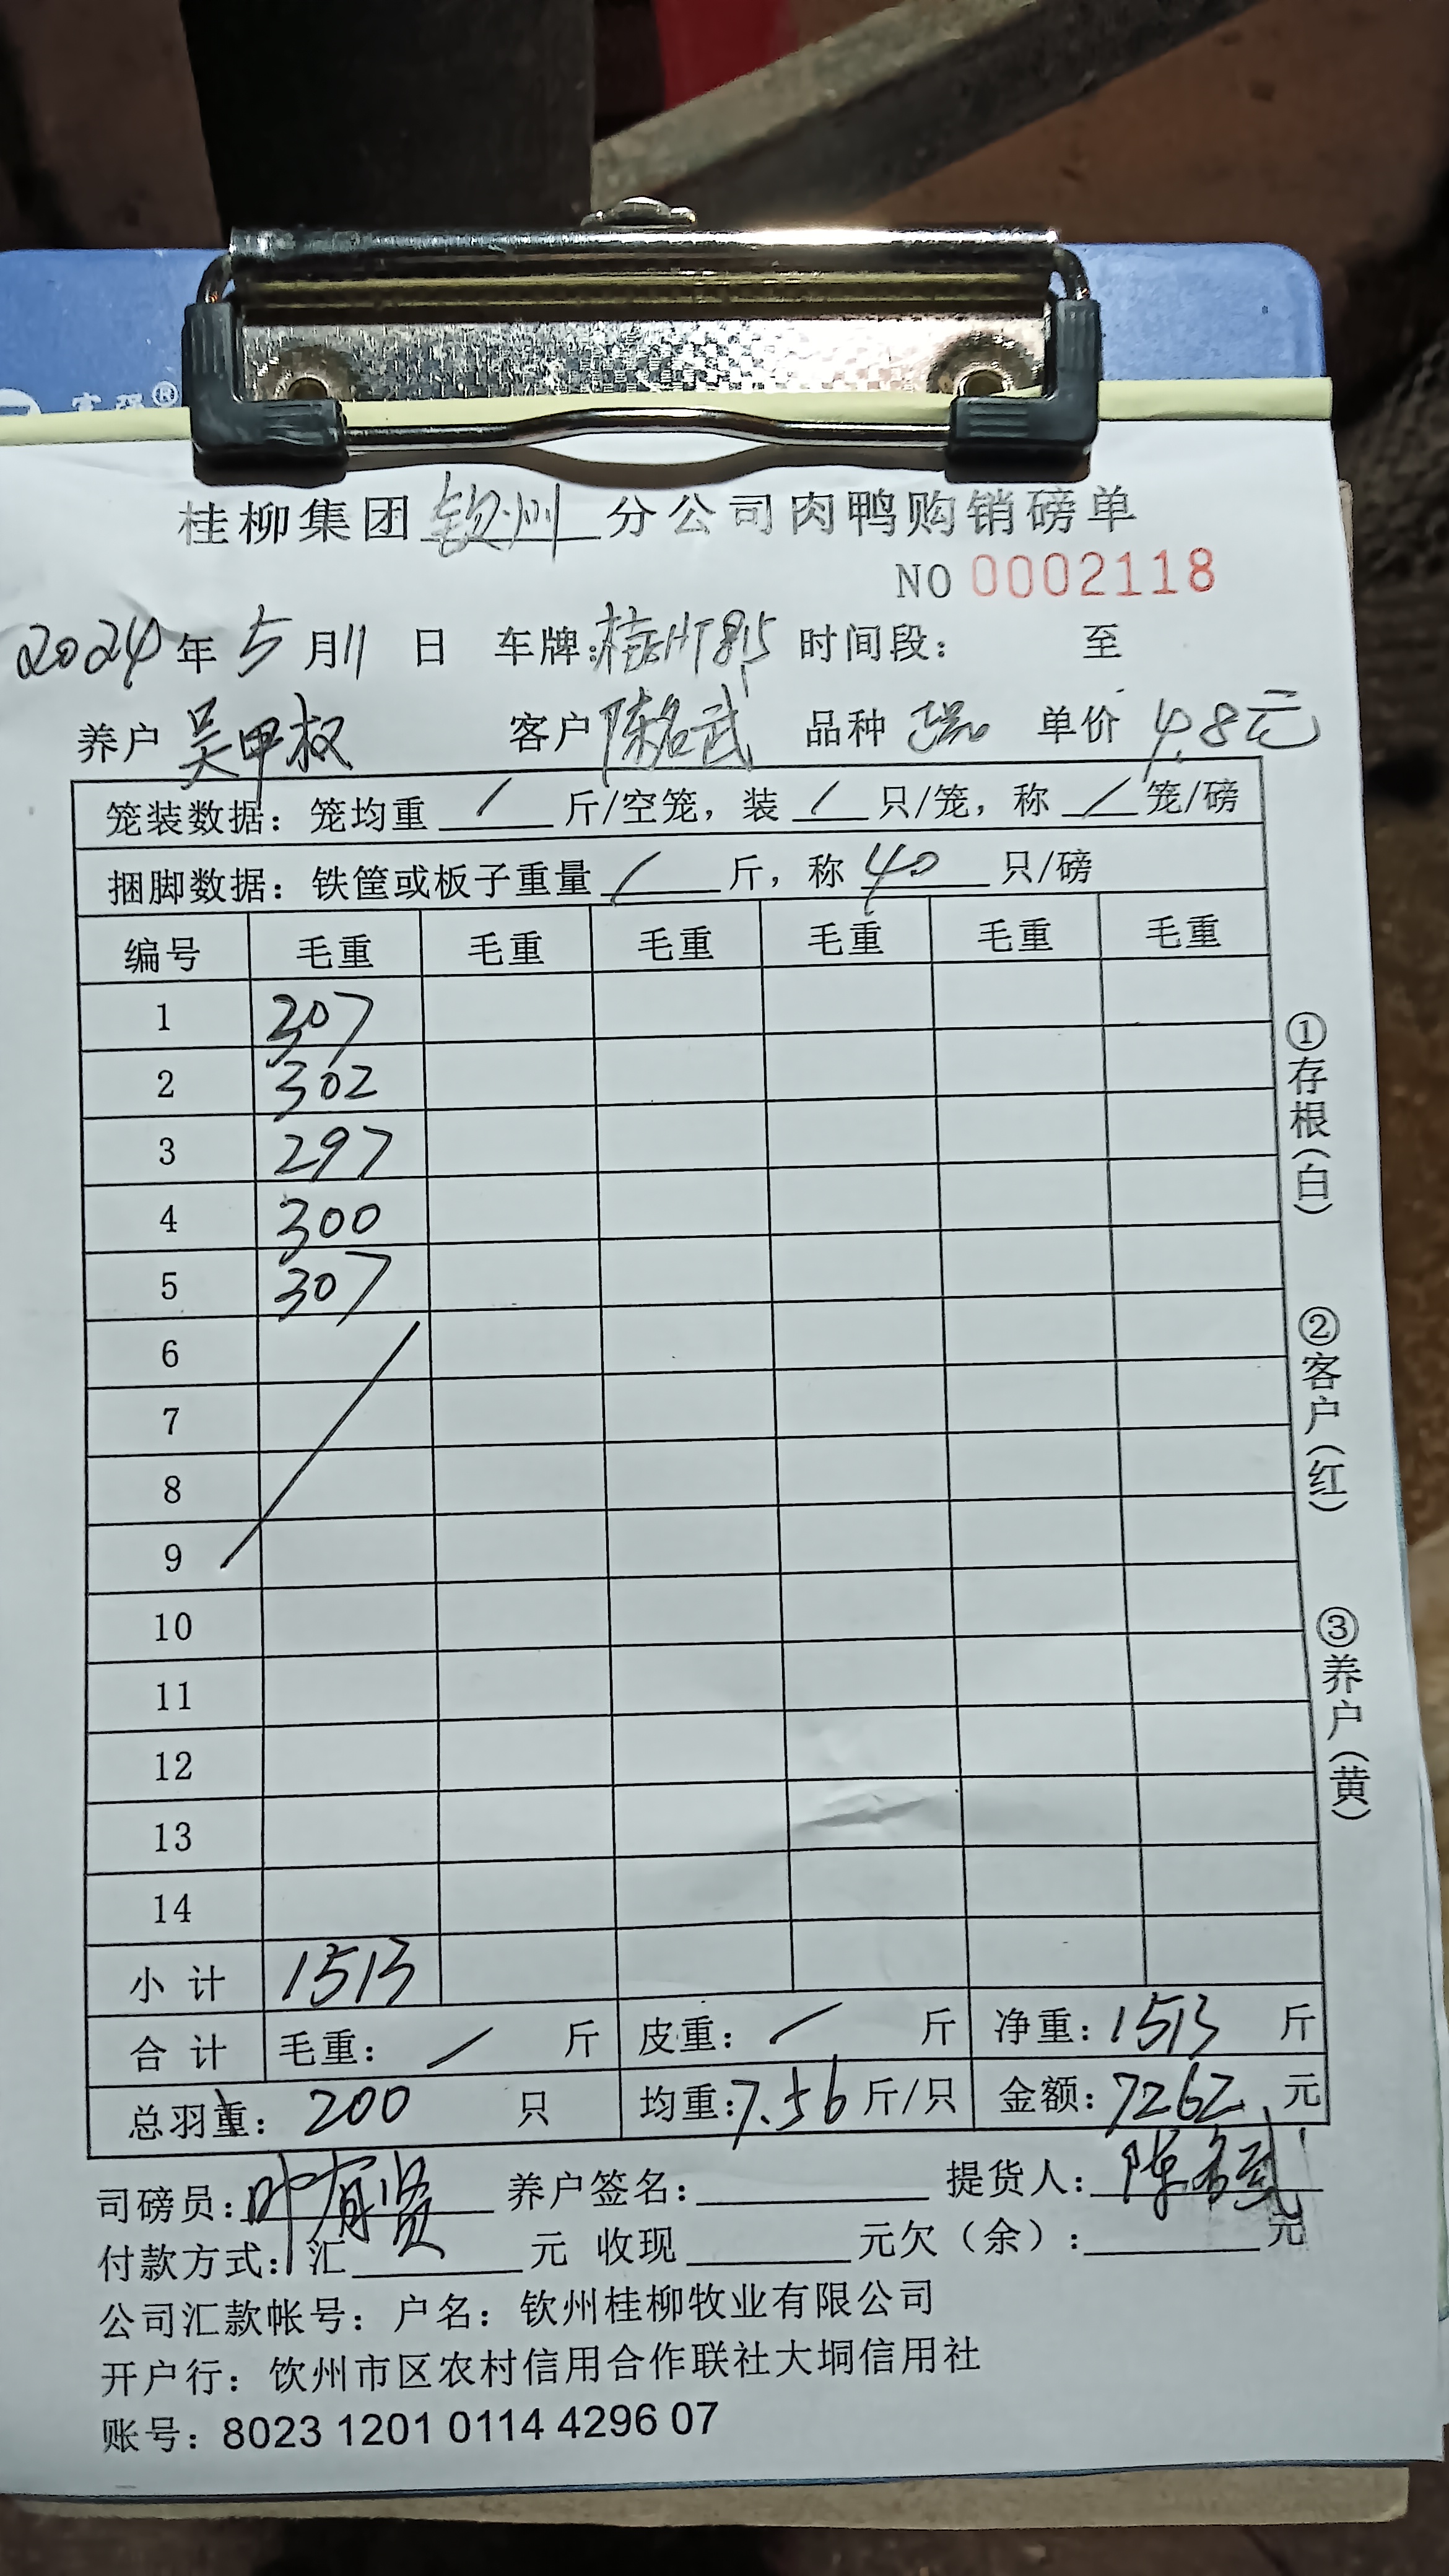 富强®
桂柳集团 钦州 分公司肉鸭购销磅单
NO 0002118
2024 年 5 月 11 日 车牌: 时间段： 至
养户 吴甲权 客户 陈名武 品种 单价 4.8元
笼装数据：笼均重 / 斤/空笼，装 / 只/笼，称 / 笼/磅
捆脚数据：铁筐或板子重量 / 斤，称 40 只/磅
编号 毛重 毛重 毛重 毛重 毛重 毛重
1 307
2 302
3 297
4 300
5 307
6
7
8
9
10
11
12
13
14
小计 1513
合计 毛重： / 斤 皮重： / 斤 净重：1513 斤
总羽重：200 只 均重：7.56 斤/只 金额：7262 元
司磅员：叶有贤 养户签名： 提货人：陈名武
付款方式：汇 元 收现 元欠（余）： 元
公司汇款帐号：户名：钦州桂柳牧业有限公司
开户行：饮州市区农村信用合作联社大垌信用社
账号：8023 1201 0114 4296 07
①存根（白）
②客户（红）
③养户（黄）